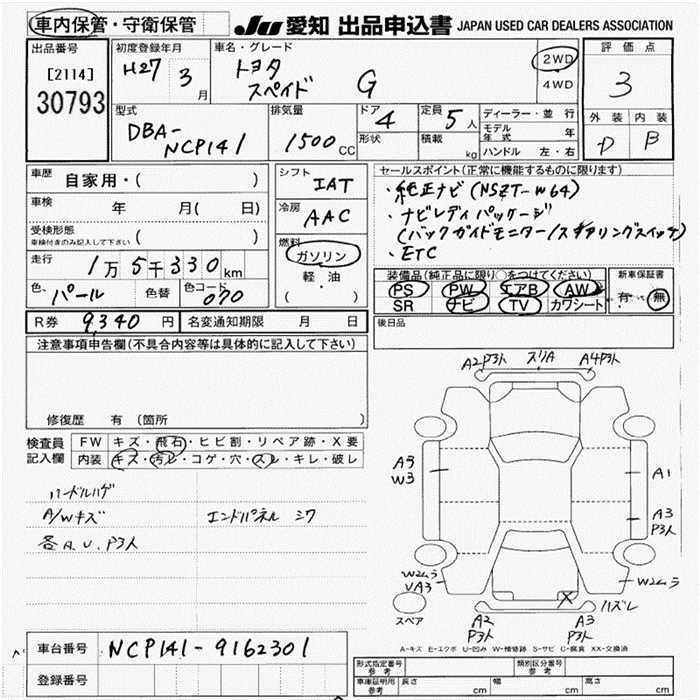 車内保管・守衛保管
JU 愛知 出品申込書 JAPAN USED CAR DEALERS ASSOCIATION
出品番号
[2114]
30793
初度登録年月
H27 3月
車名・グレード
トヨタ
スペイド G
2WD
4WD
評価点
3
外装 内装
D B
型式
DBA-
NCP141
排気量
1500 CC
ドア 4
形状
定員 5人
積載 kg
ディーラー・並行
モデル年式 年
ハンドル 左・右
車歴 自家用・( )
車検 年 月( 日)
受検形態
車検付きのみ記入して下さい ( )
走行 1万5千330km
色、パール 色替 色コード 070
シフト IAT
冷房 AAC
燃料
ガソリン
軽・油
( )
セールスポイント(正常に機能するものに限ります)
・純正ナビ(NSZT-W64)
・ナビレディパッケージ
(バックガイドモニター/ステアリングスイッチ)
・ETC
装備品(純正品に限り○をつけてください)
PS PW エアB AW
SR ナビ TV カワシート
新車保証書
有・無
R券 9,340円 名変通知期限 月 日
後日品
注意事項申告欄(不具合内容等は具体的に記入して下さい)
修復歴 有(箇所 )
検査員記入欄
FW キズ・飛石・ヒビ割・リペア跡・X要
内装 キズ・汚レ・コゲ・穴・スレ・キレ・破レ
ハードルハゲ
A/Wキズ エンドパネル シワ
各A.U.P3人
A2P3人 スリA A4P3人
A3
W3
A1
A3
P3人
W2ムラ
VA3
W2ムラ
X
ハズレ
スペア
A2
P3人
A3
P3人
A-キズ E-エクボ U-凹み W-補修跡 S-サビ C-腐食 XX-交換済
車台番号 NCP141-9162301
登録番号
型式指定番号
参考
類別区分番号
参考
車庫証明用
参考
長さ cm 幅 cm 高さ cm